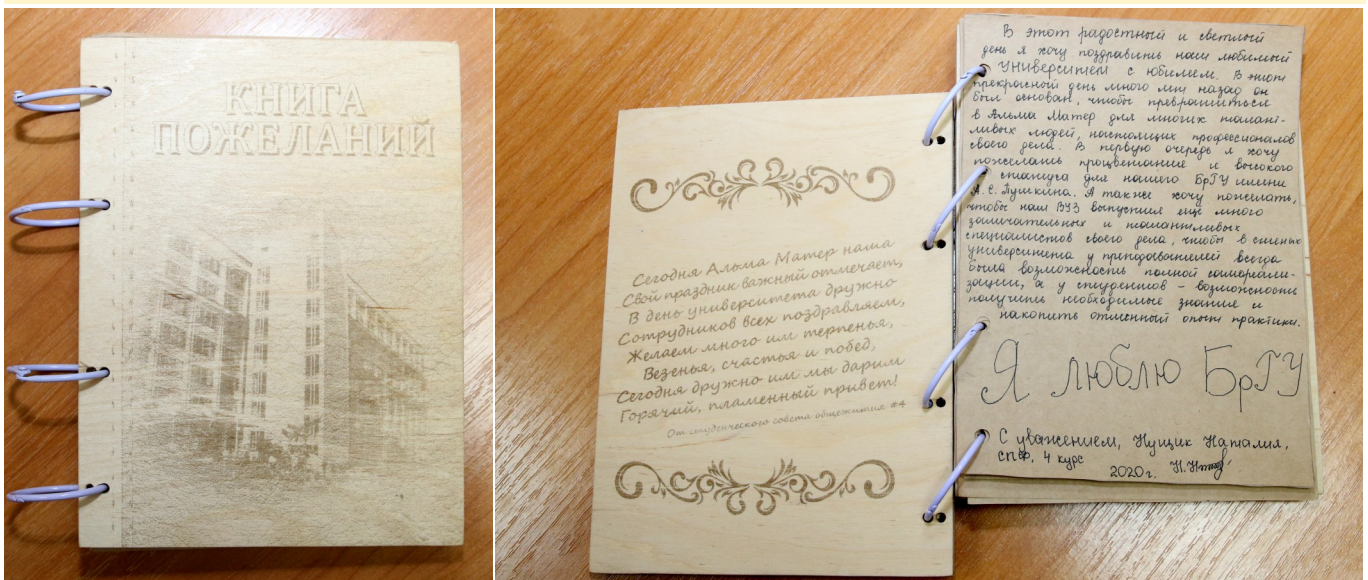 КНИГА
ПОЖЕЛАНИЙ
Сегодня Альма Матер наша
Свой праздник важный отмечает,
В день университета дружно
Сотрудников всех поздравляем,
Желаем много им терпенья,
Везенья, счастья и побед,
Сегодня дружно им мы дарим
Горячий, пламенный привет!
От студенческого совета общежития #4
В этот радостный и светлый
день я хочу поздравить наш любимый
УНИВерситет с юбилеем. В этот
прекрасный день много лет назад он
был основан, чтобы превратиться
в Альма Матер для многих талант-
ливых людей, настоящих профессионалов
своего дела. В первую очередь я хочу
пожелать процветания и высокого
статуса для нашего БрГУ имени
А.С. Пушкина. А также хочу пожелать,
чтобы наш ВУЗ выпустил ещё много
замечательных и талантливых
специалистов своего дела, чтобы в стенах
университета у преподавателей всегда
была возможность полной самореали-
зации, а у студентов - возможности
получить необходимые знания и
накопить отменный опыт практики.
Я люблю БрГУ
С уважением, Нущик Наталия,
СПФ, 4 курс
2020 г.